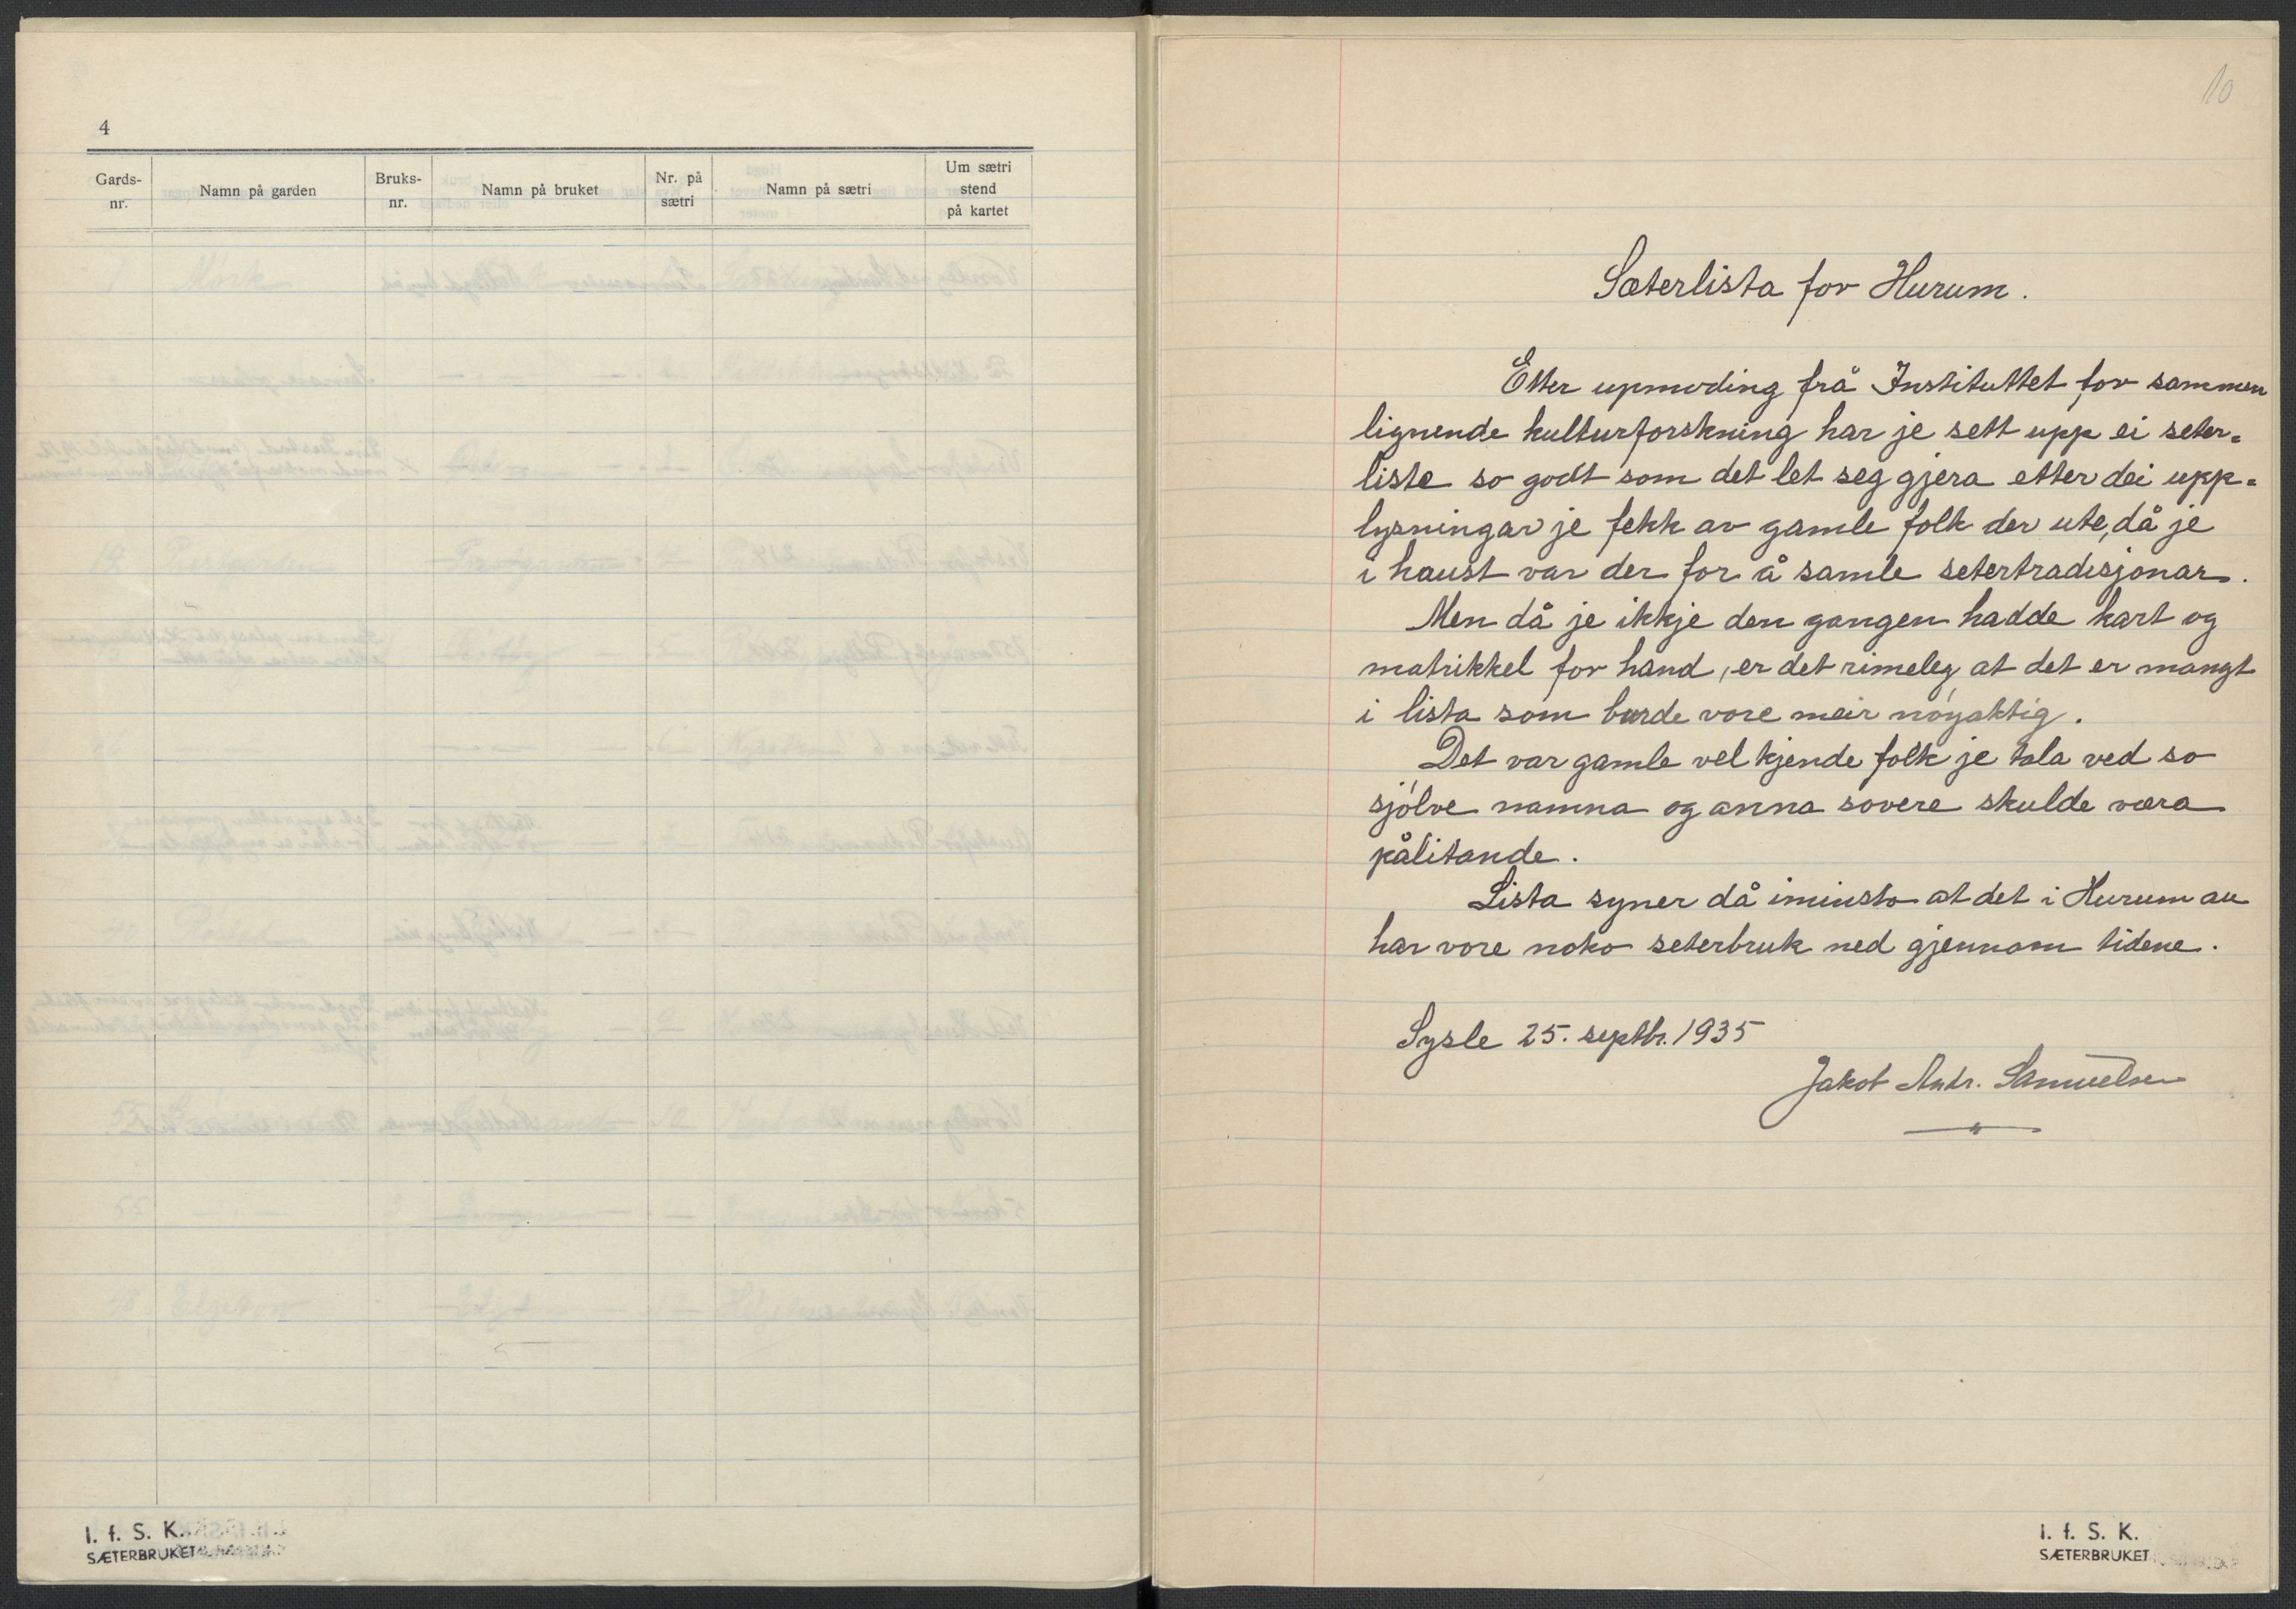 4
Gards-
nr.
Namn på garden
Bruks-
nr.
Namn på bruket
Nr. på
sætri
Namn på sætri
Um sætri
stend
på kartet
I. f. S. K.
SÆTERBRUKET
10
Sæterlista for Hurum.
Etter upmoding frå Instituttet for sammen
lignende kulturforskning har je sett upp ei seter=
liste so godt som det let seg gjera etter dei upp=
lysningar je fekk av gamle folk der ute, då je
i haust var der for å samle setertradisjonar.
Men då je ikkje den gangen hadde kart og
matrikkel for hand, er det rimeleg at det er mangt
i lista som burde vore meir nöyaktig.
Det var gamle vel kjende folk je tala ved so
sjölve namna og anna sovere skulde væra
pålitande.
Lista syner då iminsto at det i Hurum au
har vore noko seterbruk ned gjennom tidene.
Sysle 25. septbr. 1935
Jakob Andr. Samuelsen
I. f. S. K.
SÆTERBRUKET